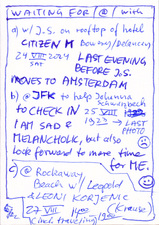 WAITING FOR / @ / with
a) w/ J.S. on rooftop of hotel
CITIZEN M Bowery/Delancey
24 VIII 2024 LAST EVENING
SAT BEFORE J.S.
MOVES TO AMSTERDAM
b) @ JFK to help Johanna
to CHECK IN 25 VIII
I AM SAD & 1923 → LAST
MELANCHOLIC, but also PHOTO
look forward to more time
for ME.
c) @ Rockaway
Beach w/ Leopold
& LEONI KORJENIC
27 VIII (Krause)